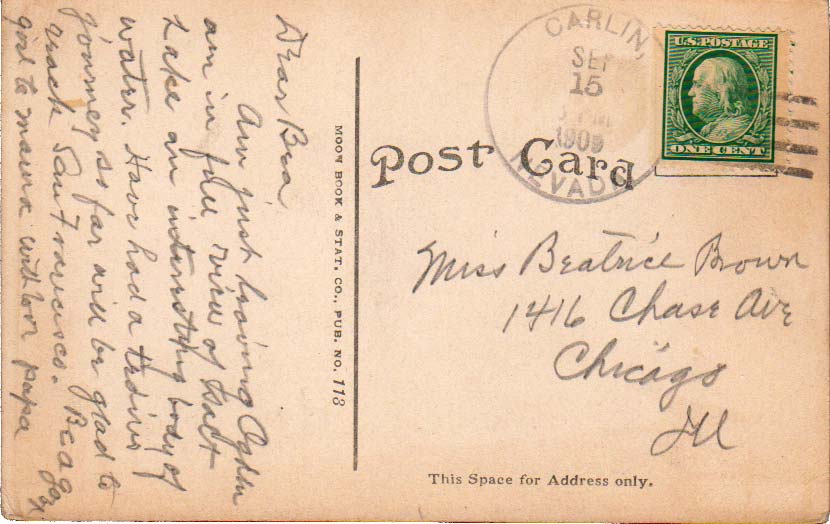 Dear Bea
Am just leaving Ogden
am in full view of Salt
Lake an interesting body of
water. Have had a tedious
journey so far will be glad to
reach San Francisco. Be a good
girl to mama with love papa
MOON BOOK & STAT. CO., PUB. NO. 113
CARLIN,
SEP
15
1909
NEVADA
U.S. POSTAGE
ONE CENT
Post Card
Miss Beatrice Brown
1416 Chase Ave
Chicago
Ill
This Space for Address only.